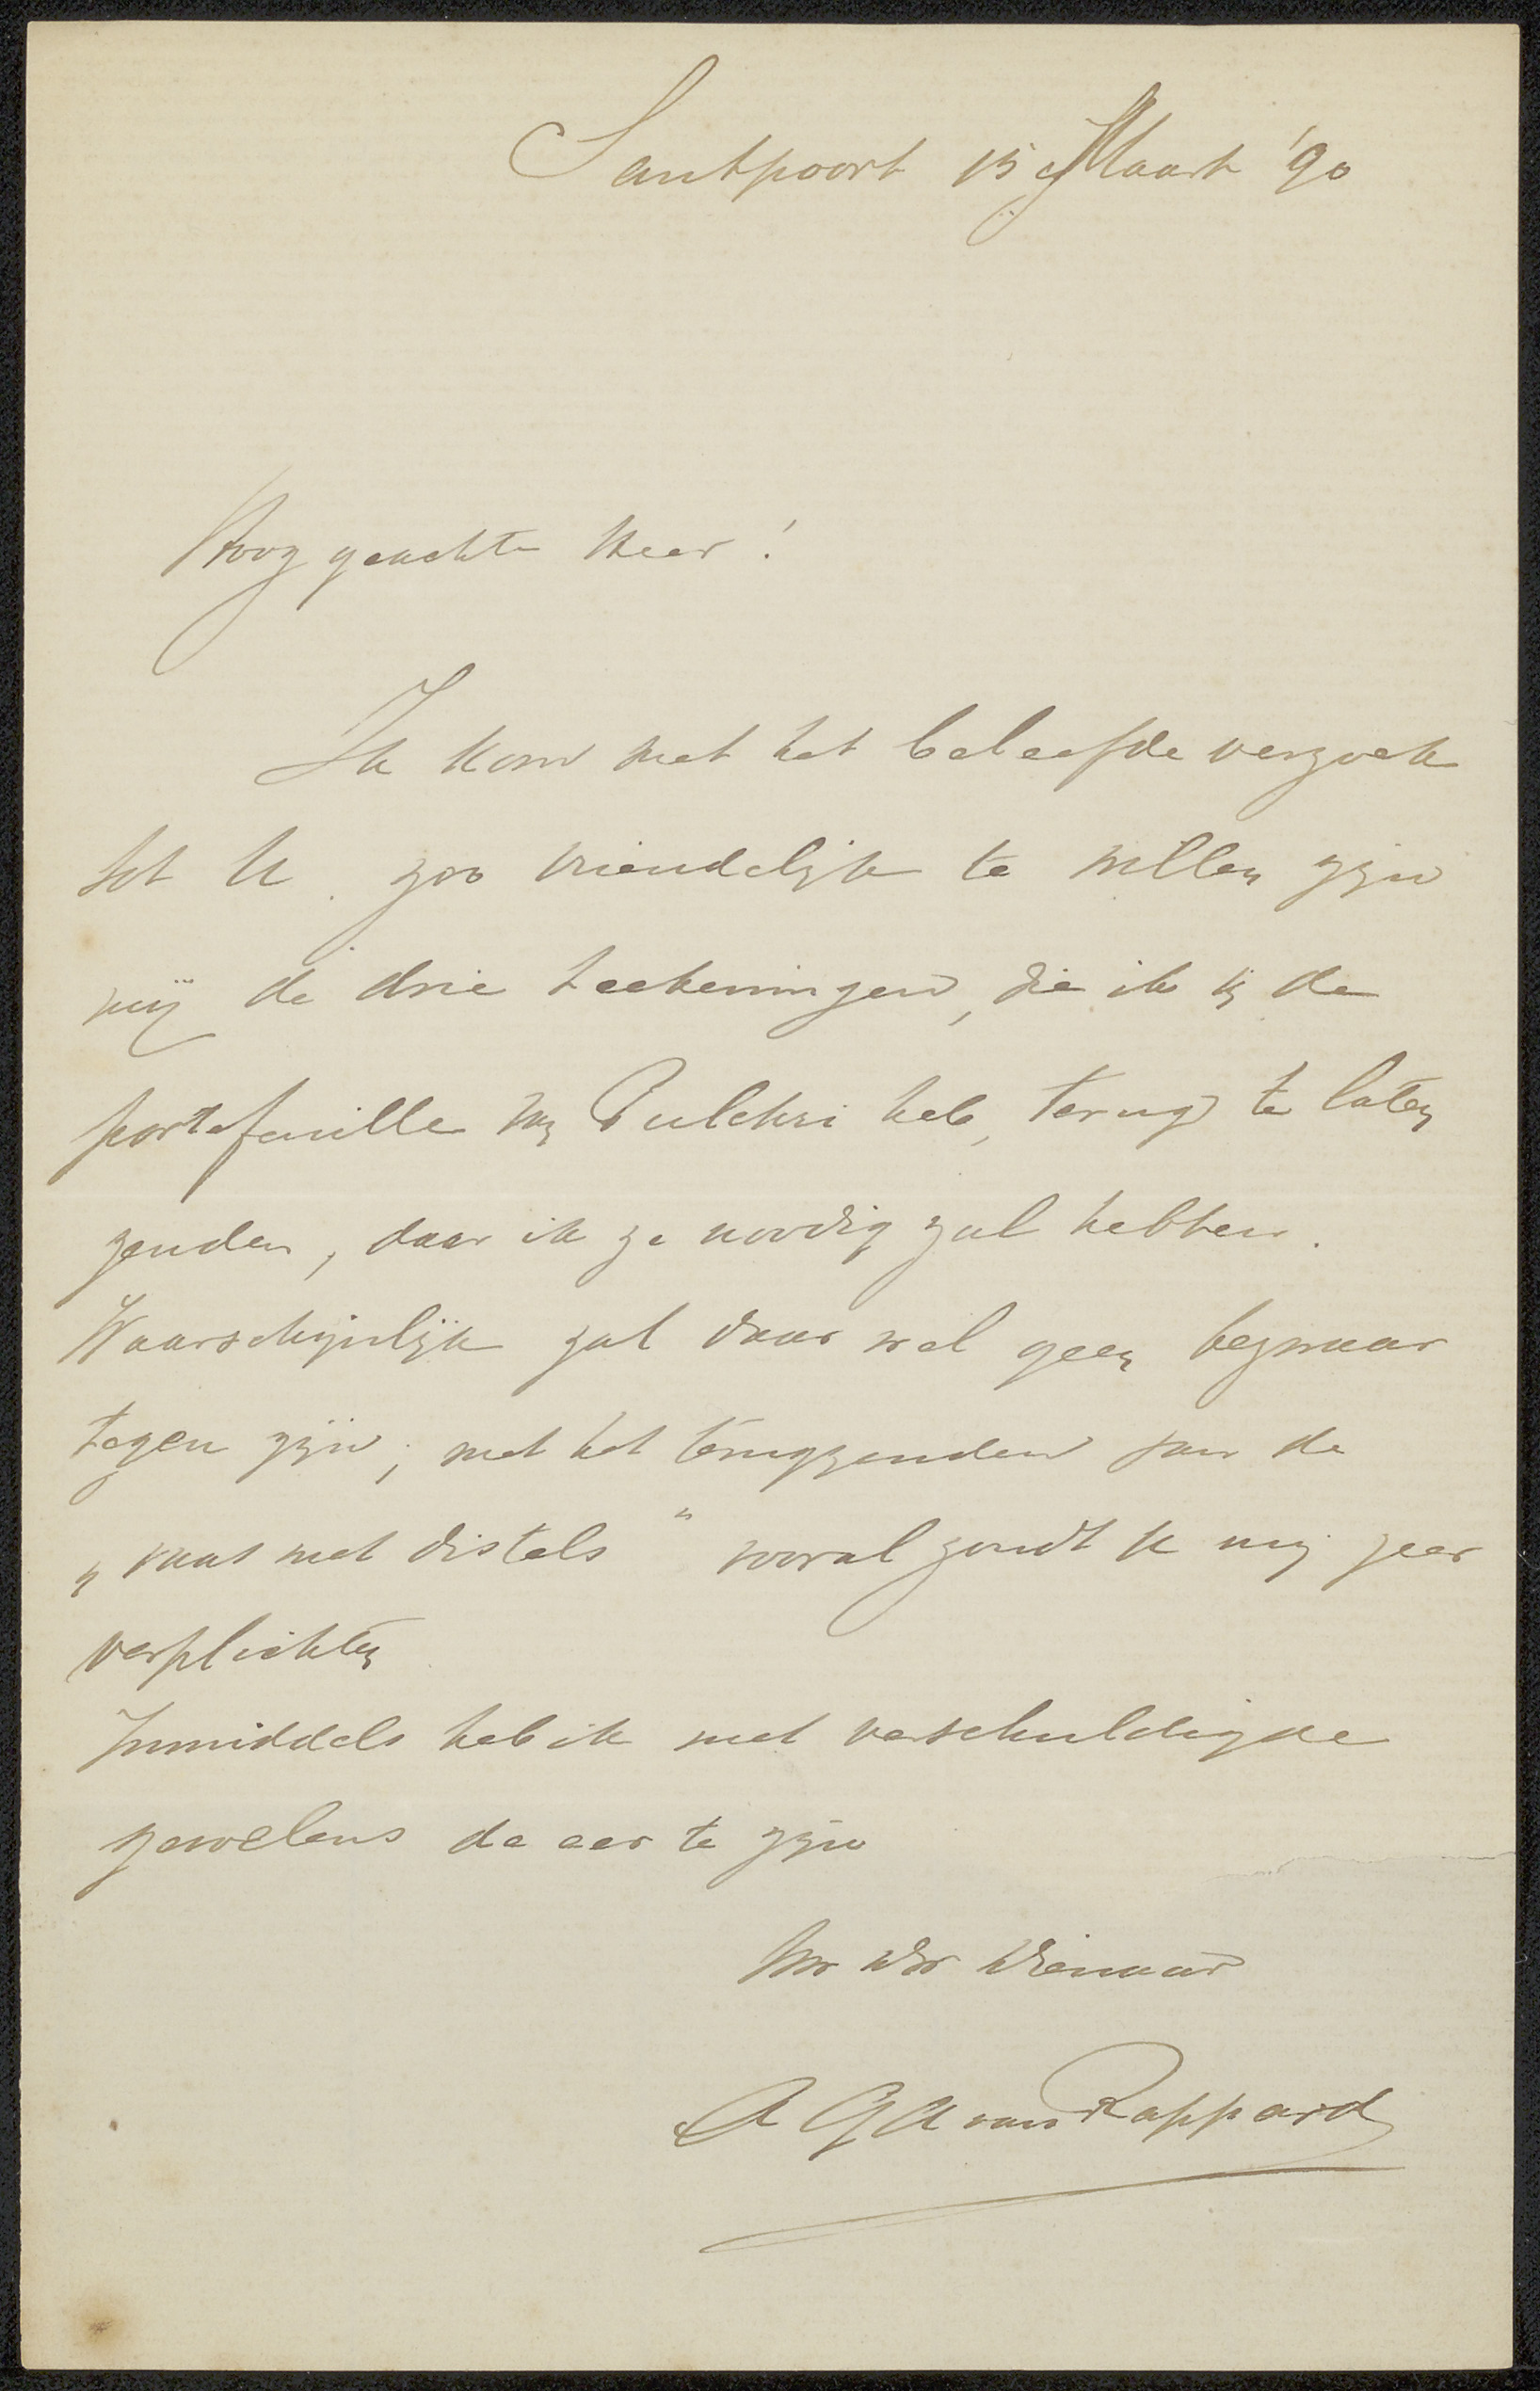 Santpoort 15 Maart '90
Hoog geachte Heer!
Ik kom met het beleefde verzoek
tot U zoo vriendelijk te willen zijn
mij de drie teekeningen, die ik bij de
portefeuille van Pulchri heb, terug te laten
zenden, daar ik ze noodig zal hebben.
Waarschijnlijk zal daar wel geen bezwaar
tegen zijn; met het terugzenden van de
„vaas met distels" vooral zoudt U mij zeer
verplichten
Inmiddels heb ik met verschuldigde
gevoelens de eer te zijn
Uw dw dienaar
A G A van Rappard